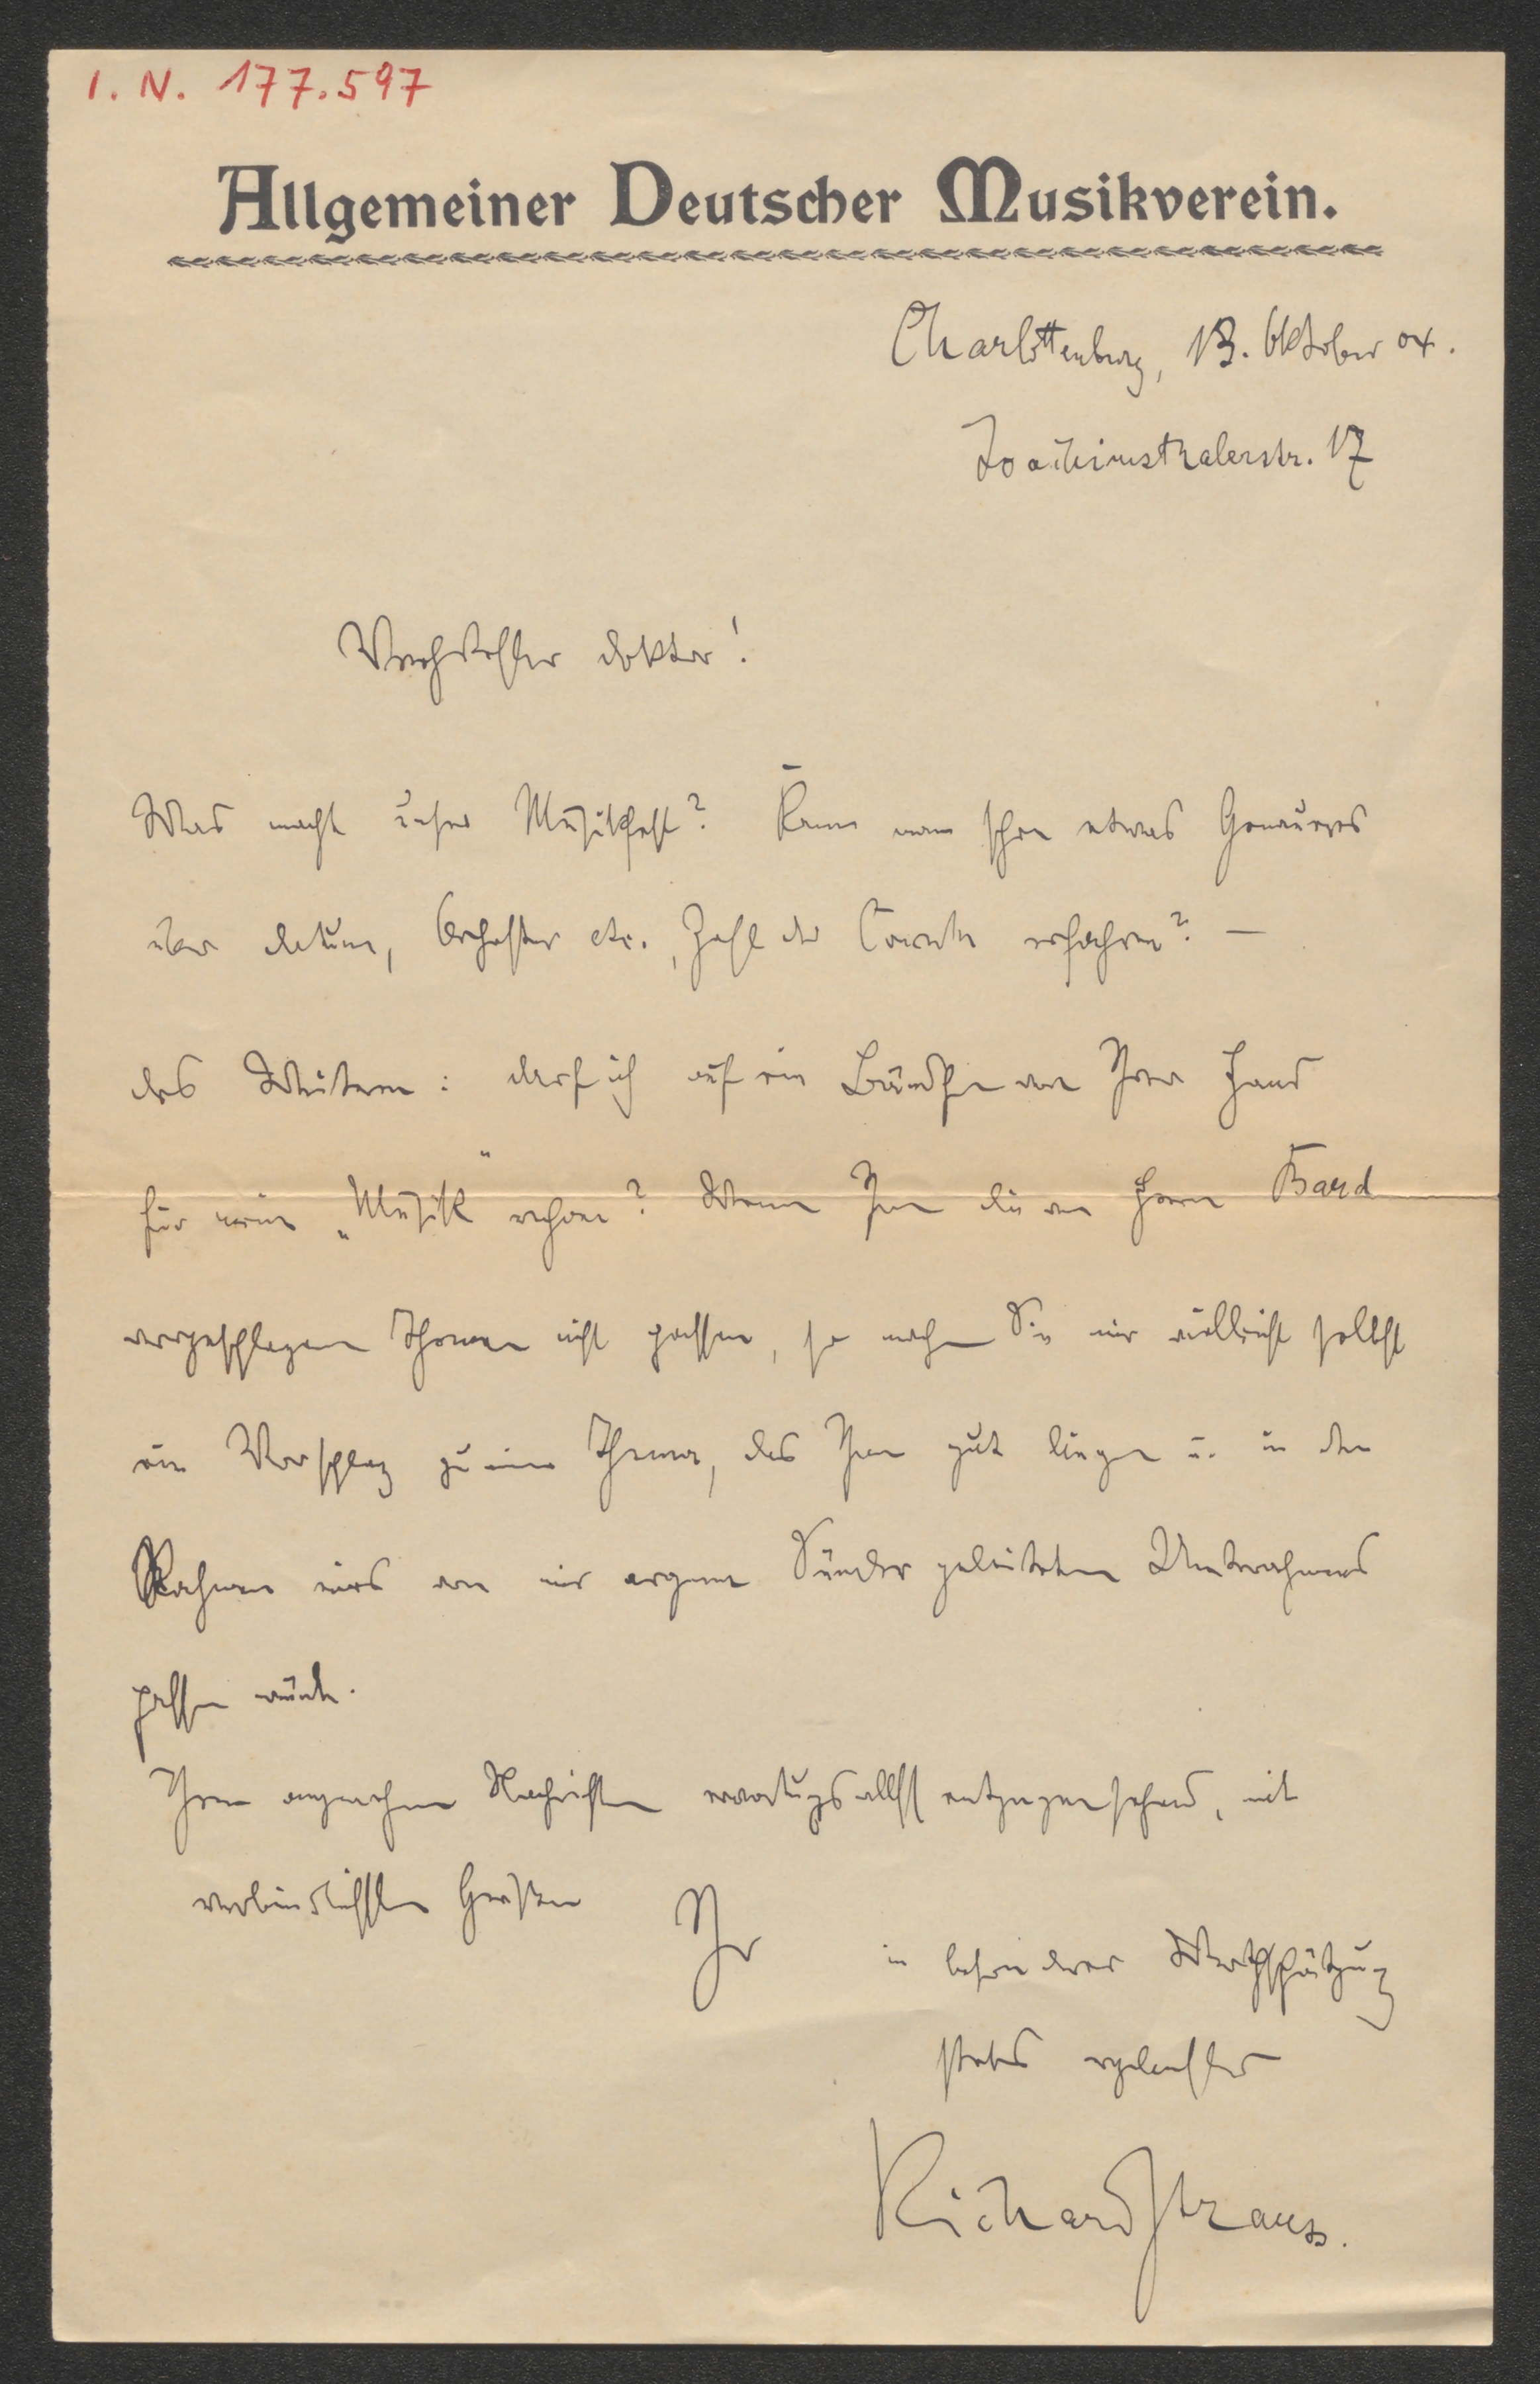 I. N. 177.597
Allgemeiner Deutscher Musikverein.
Charlottenburg, 13. Oktober 04.
Joachimsthalerstr. 17
Verehrtester Doktor!
Was macht unser Musikfest? Kann man schon etwas Genaueres
über Datum, Orchester etc., Zahl der Concerte erfahren? —
Des Weiteren: darf ich auf ein Bändchen von Ihrer Hand
für meine „Musik“ rechnen? Wenn Ihnen die von Herrn Bard
vorgeschlagenen Themen nicht passen, so machen Sie mir vielleicht selbst
ein Vorschlag zu einem Thema, das Ihnen gut liegen u. in den
Rahmen eines von mir argem Sünder geleiteten Unternehmens
passen würde.
Ihren angenehmen Nachrichten erwartungsvollst entgegensehend, mit
verbindlichsten Grüßen
Ihr in besonderer Werthschätzung
stets ergebenster
Richard Strauss.